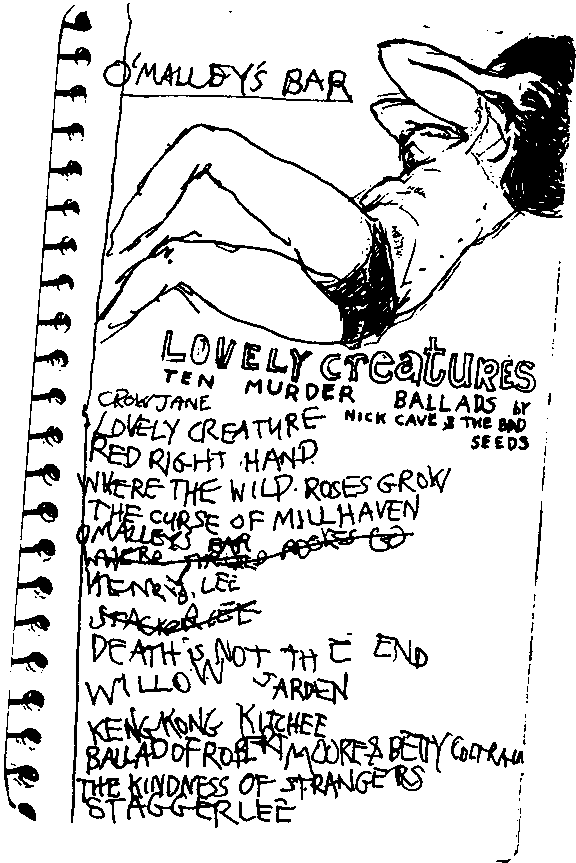 O'MALLEY'S BAR
LOVELY CREATURES
TEN MURDER BALLADS BY
NICK CAVE & THE BAD
SEEDS
CROW JANE
LOVELY CREATURE
RED RIGHT HAND
WHERE THE WILD ROSES GROW
THE CURSE OF MILLHAVEN
OMALLEYS BAR
WHERE
HENRY LEE
STACKO LEE
DEATH is NOT THE END
WILLOW GARDEN
KENG KONG KITCHEE
BALLAD OF ROBERT MOORE & BETTY COLTRAIN
THE KINDNESS OF STRANGERS
STAGGER LEE